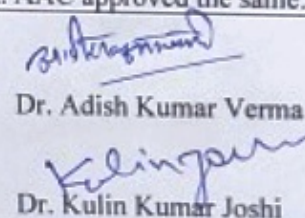 AAC approved the same.
Dr. Adish Kumar Verma
Dr. Kulin Kumar Joshi